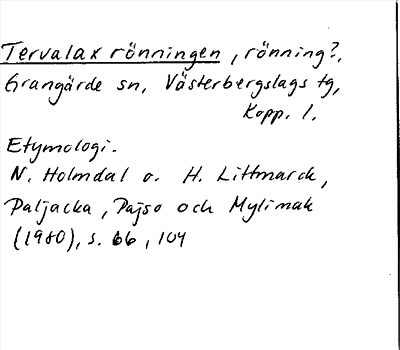 Tervalax rönningen, rönning?,
Grangärde sn, Västerbergslags tg,
Kopp. l.
Etymologi.
N. Holmdal o. H. Littmarck,
Paljacka, Pajso och Mylimak
(1980), s. 66, 104